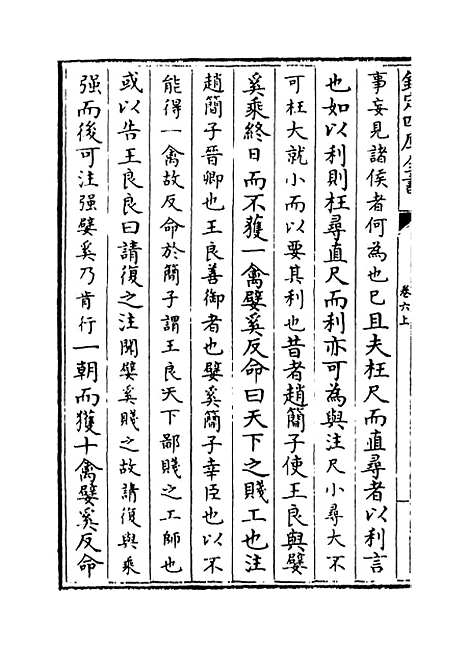 欽定四庫全書
卷六上
事妄見諸侯者何為也已且夫枉尺而直尋者以利言
也如以利則枉尋直尺而利亦可為與注尺小尋大不
可枉大就小而以要其利也昔者趙簡子使王良與嬖
奚乘終日而不獲一禽嬖奚反命曰天下之賤工也注
趙簡子晉卿也王良善御者也嬖奚簡子幸臣也以不
能得一禽故反命於簡子謂王良天下鄙賤之工師也
或以告王良良曰請復之注聞嬖奚賤之故請復與乘
强而後可注强嬖奚乃肯行一朝而獲十禽嬖奚反命